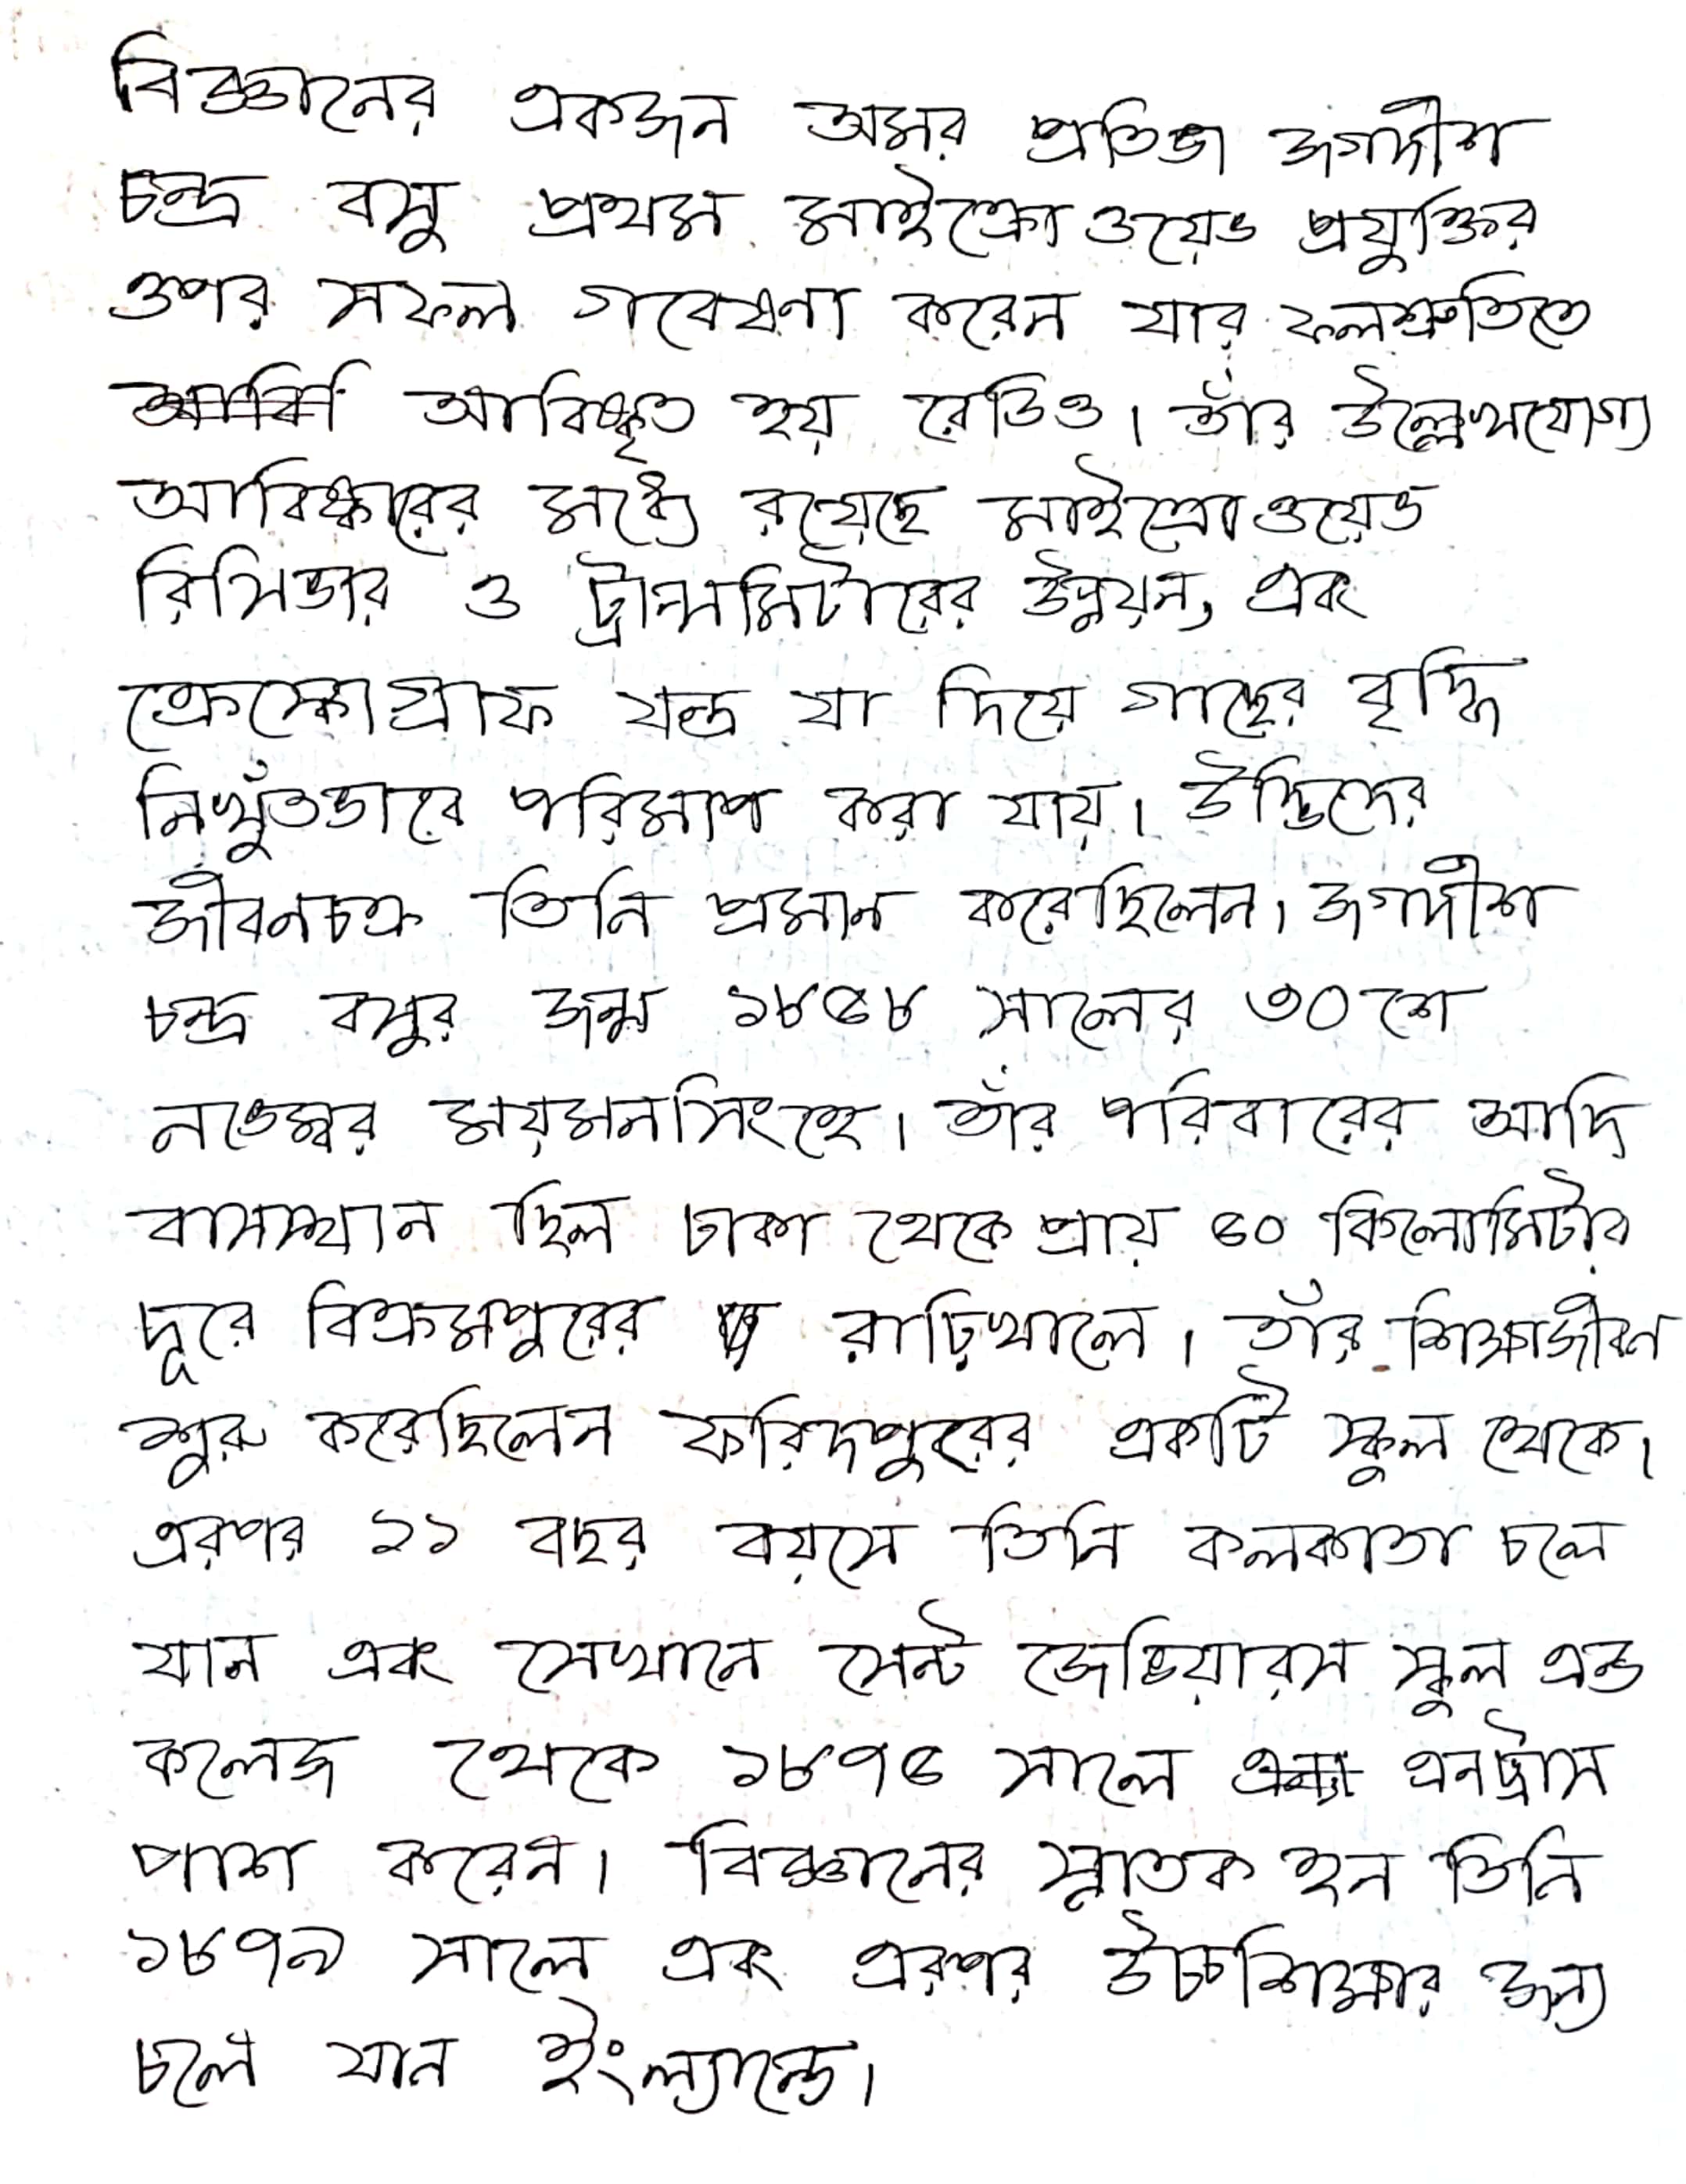 বিজ্ঞানের একজন অমর প্রতিভা জগদীশ
চন্দ্র বসু প্রথম মাইক্রোওয়েভ প্রযুক্তির
ওপর সফল গবেষণা করেন যার ফলশ্রুতিতে
আবি আবিষ্কৃত হয় রেডিও। তাঁর উল্লেখযোগ্য
আবিষ্কারের মধ্যে রয়েছে মাইক্রোওয়েভ
রিসিভার ও ট্রান্সমিটারের উন্নয়ন, এবং
ক্রেস্কোগ্রাফ যন্ত্র যা দিয়ে গাছের বৃদ্ধি
নিখুঁতভাবে পরিমাপ করা যায়। উদ্ভিদের
জীবনচক্র তিনি প্রমান করেছিলেন। জগদীশ
চন্দ্র বসুর জন্ম ১৮৫৮ সালের ৩০শে
নভেম্বর ময়মনসিংহে। তাঁর পরিবারের আদি
বাসস্থান ছিল ঢাকা থেকে প্রায় ৫০ কিলোমিটার
দূরে বিক্রমপুরের রাঢ়িখালে। তাঁর শিক্ষাজীবন
শুরু করেছিলেন ফরিদপুরের একটি স্কুল থেকে।
এরপর ১১ বছর বয়সে তিনি কলকাতা চলে
যান এবং সেখানে সেন্ট জেভিয়ারস স্কুল এন্ড
কলেজ থেকে ১৮৭৫ সালে এনট্রাস
পাশ করেন। বিজ্ঞানের স্নাতক হন তিনি
১৮৭৯ সালে এবং এরপর উচ্চশিক্ষার জন্য
চলে যান ইংল্যান্ডে।